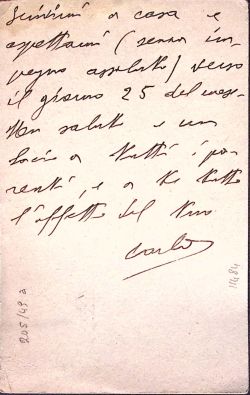 Scrivimi a casa e
aspettami (senza im-
pegno assoluto) verso
il giorno 25 del mese.
Un saluto e un
bacio a tutti i pa-
renti, e a te tutto
l'affetto del tuo
Carlo
205/49 a